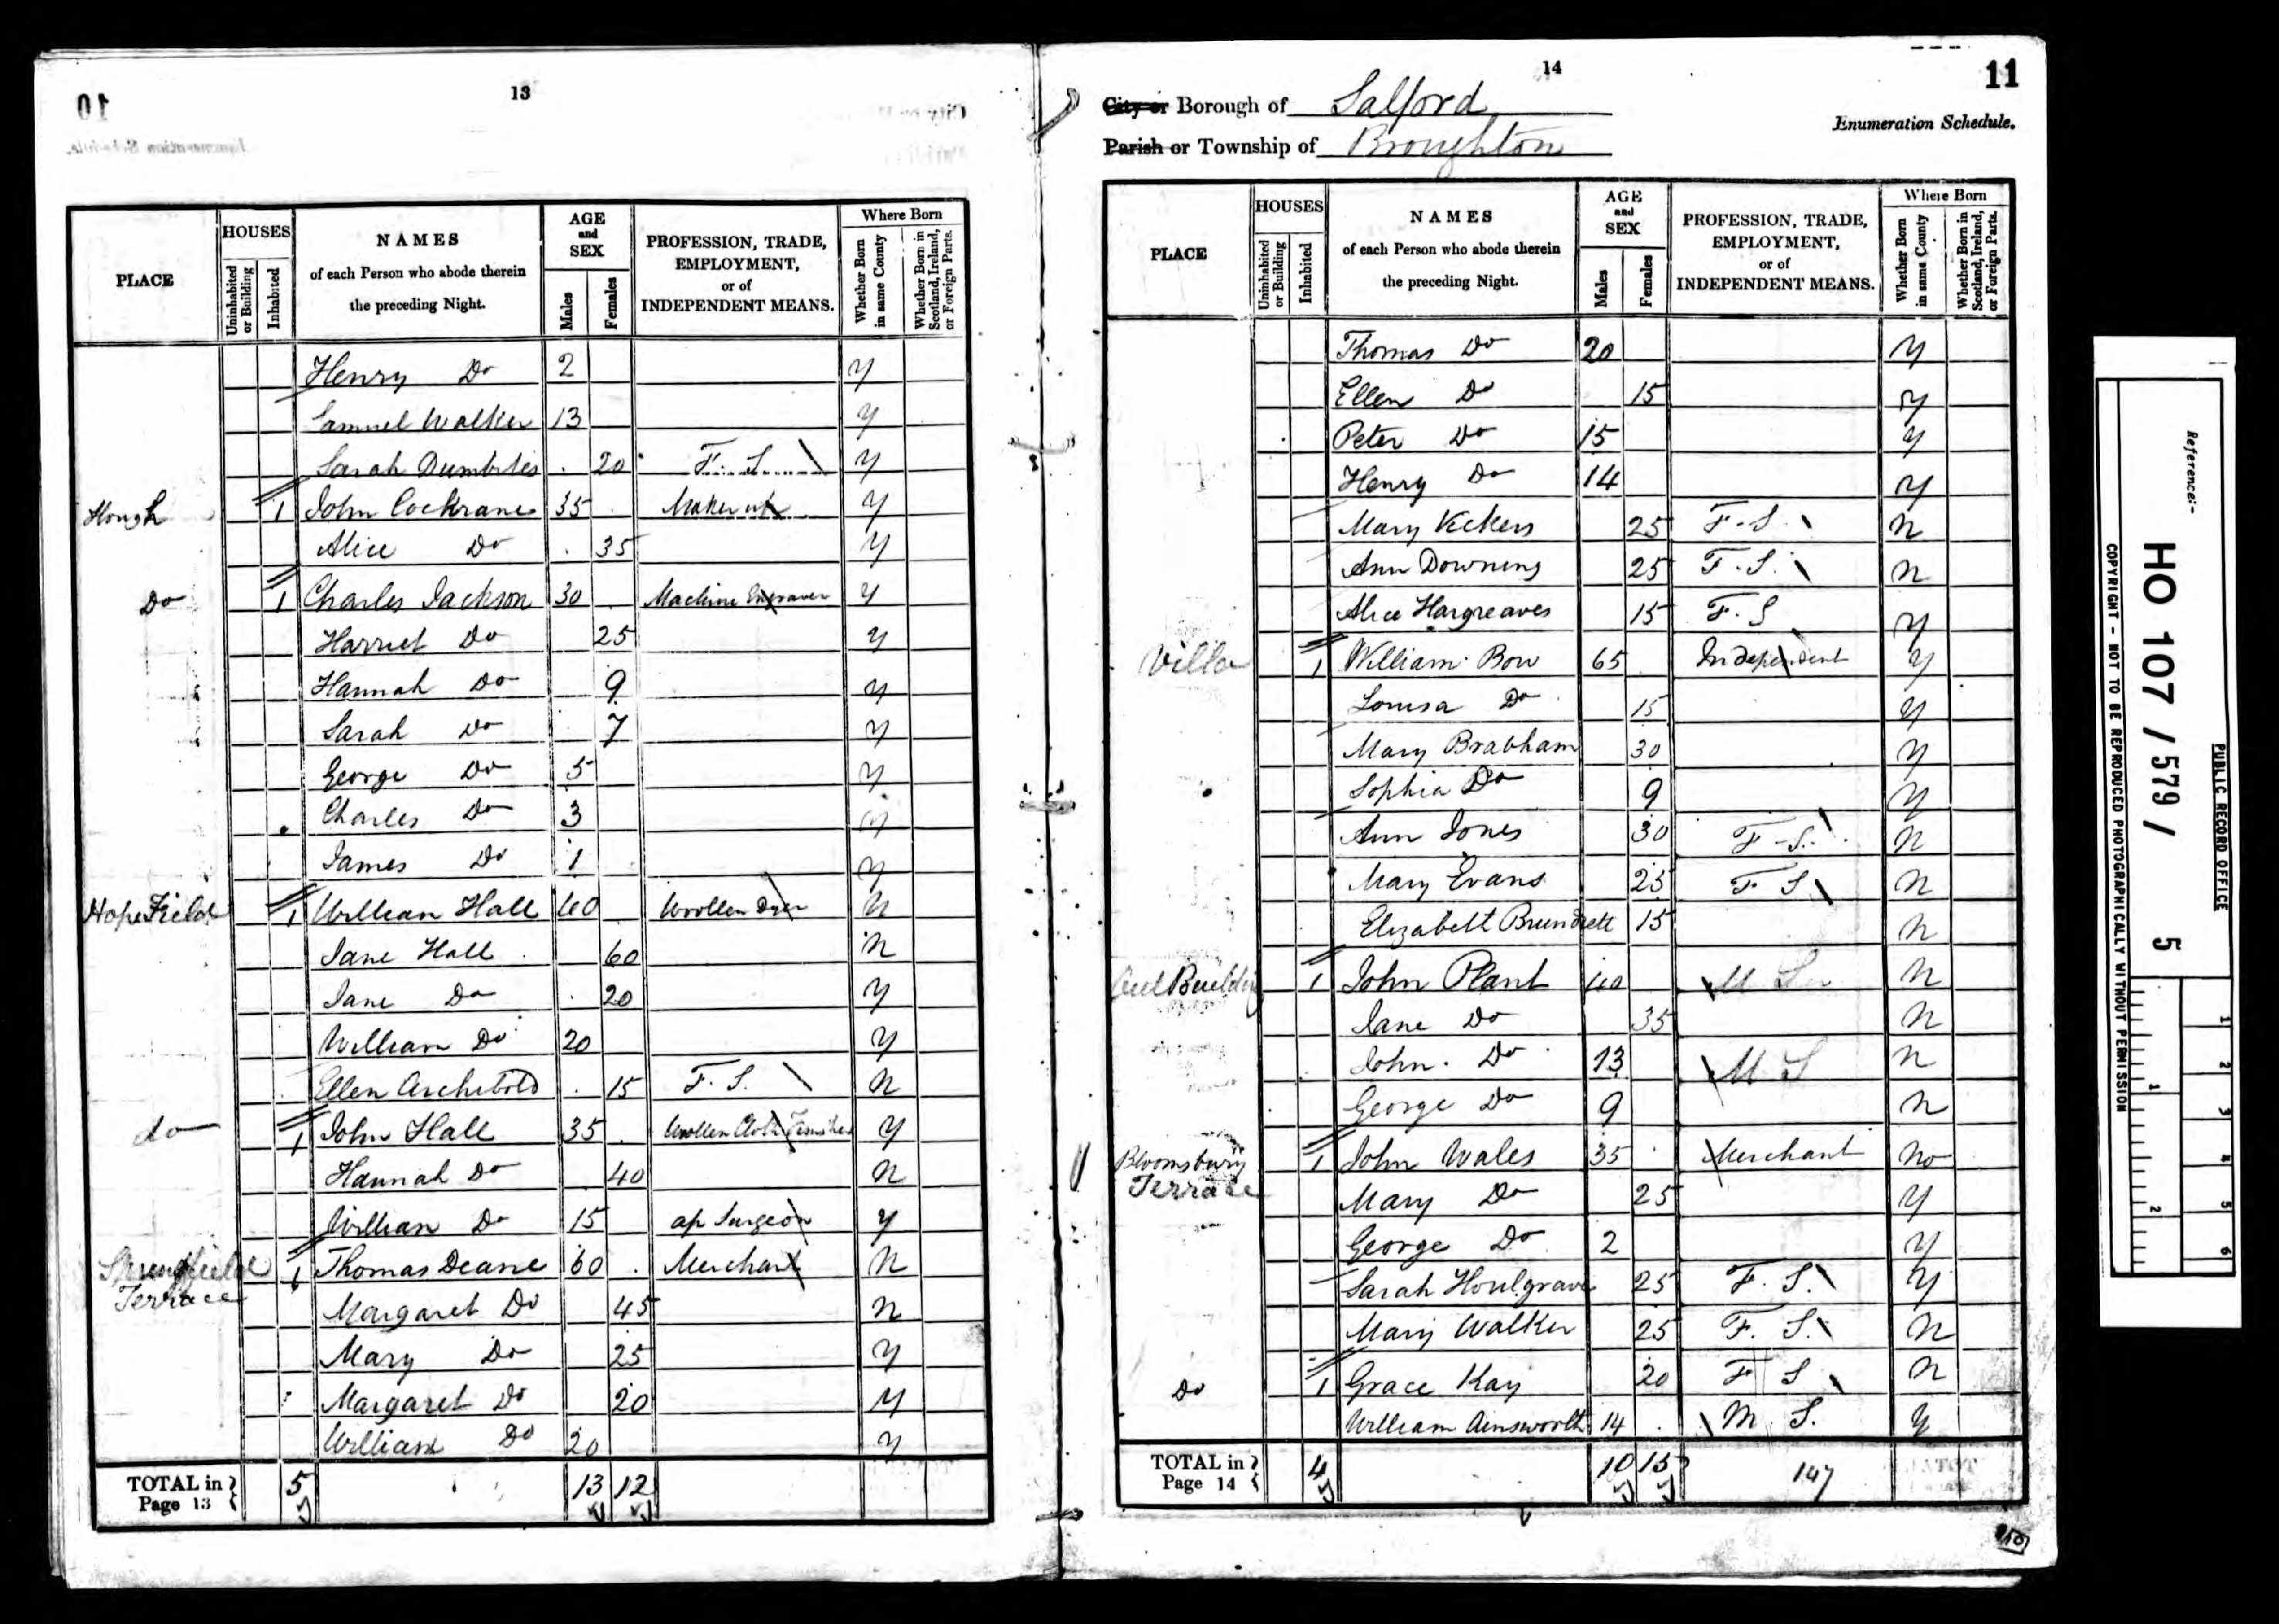 13
PLACE
HOUSES
Uninhabited or Building
Inhabited
NAMES
of each Person who abode therein
the preceding Night.
AGE and SEX
Males
Females
PROFESSION, TRADE,
EMPLOYMENT,
or of
INDEPENDENT MEANS.
Where Born
Whether Born in same County
Whether Born in Scotland, Ireland, or Foreign Parts.
Henry Do 2 y
Samuel Walker 13 y
Sarah 20 F. S. y
Hough 1 John Cockrane 35 Maker up y
Alice Do 35 y
Do 1 Charles Jackson 30 Machine Engraver y
Harriet Do 25 y
Hannah Do 9 y
Sarah Do 7 y
George Do 5 y
Charles Do 3 y
James Do 1 y
Hope Field 1 William Hall 40 Woollen Dyer N
Jane Hall 60 N
Jane Do 20 y
William Do 20 y
Ellen Archibold 15 F. S. N
do 1 John Hall 35 Woollen Cloth Finisher y
Hannah Do 40 N
William Do 15 ap Surgeon y
Springfield Terrace 1 Thomas Deane 60 Merchant N
Margaret Do 45 N
Mary Do 25 y
Margaret Do 20 y
William Do 20 y
TOTAL in Page 13 5 13 12
14
11
City or Borough of Salford
Parish or Township of Broughton
Enumeration Schedule.
PLACE
HOUSES
Uninhabited or Building
Inhabited
NAMES
of each Person who abode therein
the preceding Night.
AGE and SEX
Males
Females
PROFESSION, TRADE,
EMPLOYMENT,
or of
INDEPENDENT MEANS.
Where Born
Whether Born in same County
Whether Born in Scotland, Ireland, or Foreign Parts.
Thomas Do 20 y
Ellen Do 15 y
Peter Do 15 y
Henry Do 14 y
Mary Vickers 25 F. S. N
Ann Downing 25 F. S. N
Alice Hargreaves 15 F. S y
Villa 1 William Bow 65 Independent y
Louisa Do 15 y
Mary Brabham 30 y
Sophia Do 9 y
Ann Jones 30 F. S. N
Mary Evans 25 F S N
Elizabeth Brundrett 15 N
Building 1 John Plant 40 M N
Jane Do 35 N
John Do 13 M S N
George Do 9 N
Bloomsbury Terrace 1 John Wales 35 Merchant No
Mary Do 25 y
George Do 2 y
Sarah Houlgrave 25 F. S. y
Mary Walker 25 F. S. N
Do 1 Grace Kay 20 F S N
William Ainsworth 14 M. S. y
TOTAL in Page 14 4 10 15 147
Reference:-
HO 107 / 579 / 5
PUBLIC RECORD OFFICE
COPYRIGHT - NOT TO BE REPRODUCED PHOTOGRAPHICALLY WITHOUT PERMISSION
1 2 3 4 5 6
1 2